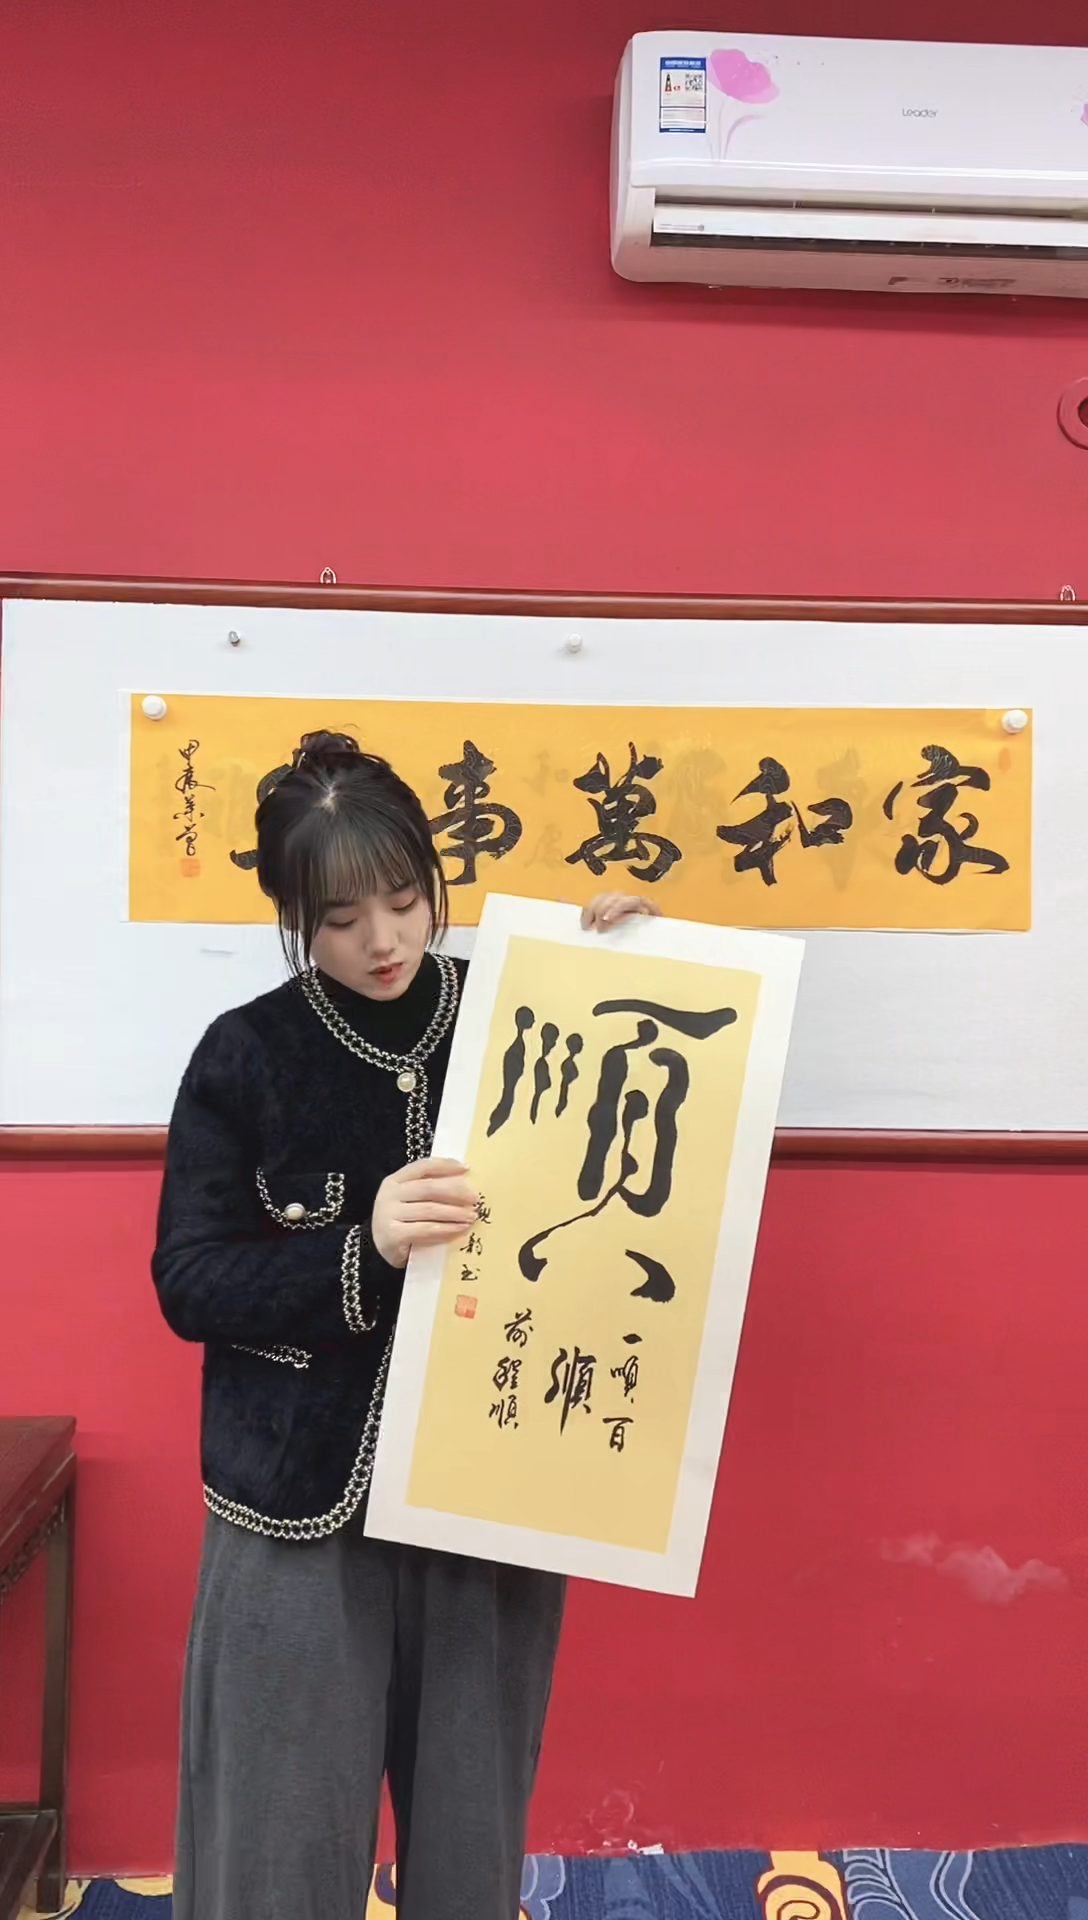 Leader
家和萬事
甲辰
順
一順百
順
前程順